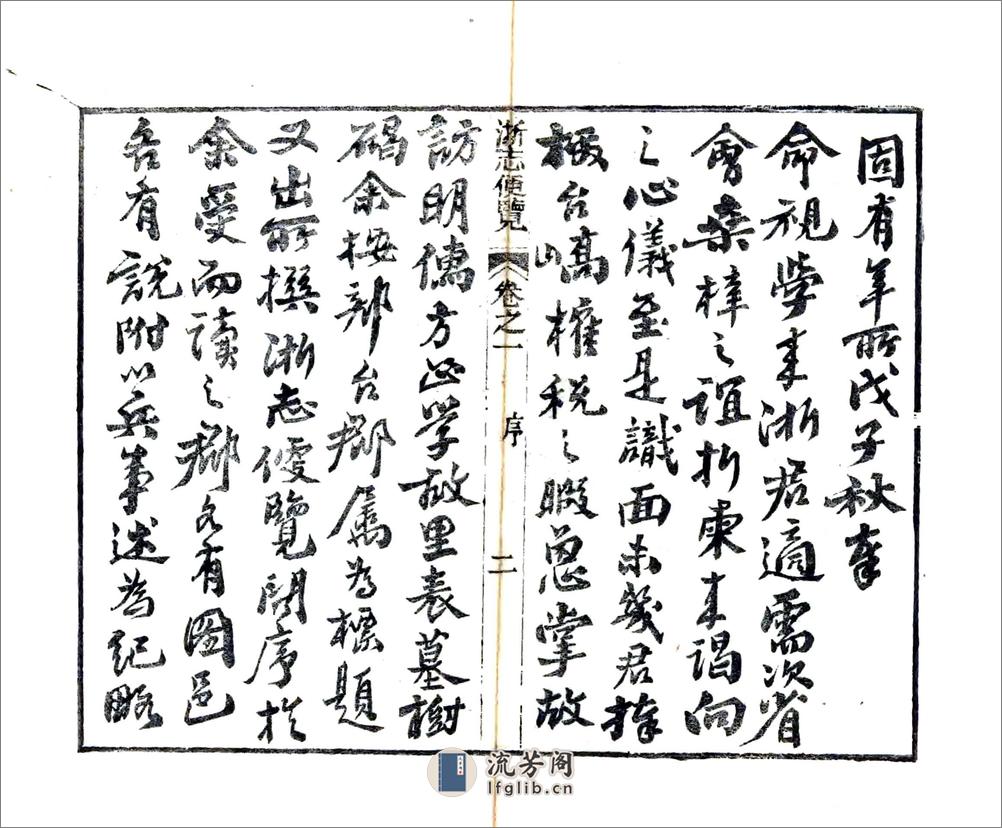 固有年所戊子秋奉
命視學來浙君適需次省
會桑梓之誼折柬來謁向
之心儀至是識面未幾君捧
檄台山高榷稅之暇恩掌故
浙志便覽 卷之一 序 二
訪明儒方正學故里表墓樹
碣余按郡台郡屬為標題
又出所撰浙志便覽問序於
余受而讀之郡各有圖邑
各有說附以兵事述為紀略
流芳阁
lfglib.cn